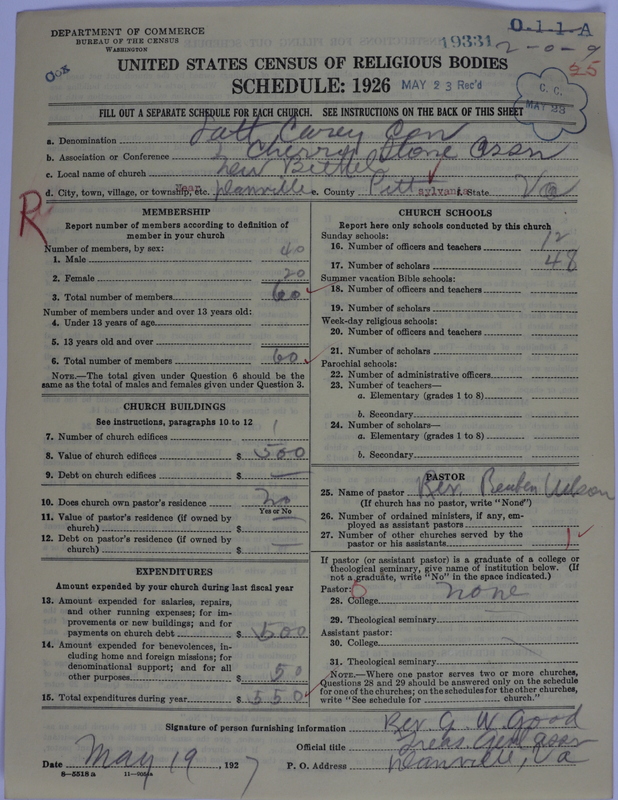 DEPARTMENT OF COMMERCE
BUREAU OF THE CENSUS
WASHINGTON
O-1-1-A
19331 2-0-9
55
UNITED STATES CENSUS OF RELIGIOUS BODIES
SCHEDULE: 1926
MAY 23 Rec'd
C. C.
MAY 23
FILL OUT A SEPARATE SCHEDULE FOR EACH CHURCH. SEE INSTRUCTIONS ON THE BACK OF THIS SHEET
a. Denomination Lott Carey Con
b. Association or Conference Cherry Stone Assn
c. Local name of church New Bethel
d. City, town, village, or township, etc. Near Danville e. County Pittsylvania f. State Va
R
MEMBERSHIP
Report number of members according to definition of member in your church
Number of members, by sex:
1. Male 40
2. Female 20
3. Total number of members 60
Number of members under and over 13 years old:
4. Under 13 years of age
5. 13 years old and over
6. Total number of members 60
NOTE.—The total given under Question 6 should be the same as the total of males and females given under Question 3.
CHURCH BUILDINGS
See instructions, paragraphs 10 to 12
7. Number of church edifices 1
8. Value of church edifices $ 500
9. Debt on church edifices $ —
10. Does church own pastor's residence No
Yes or No
11. Value of pastor's residence (if owned by church) $ —
12. Debt on pastor's residence (if owned by church) $ —
EXPENDITURES
Amount expended by your church during last fiscal year
13. Amount expended for salaries, repairs, and other running expenses; for improvements or new buildings; and for payments on church debt $ 500
14. Amount expended for benevolences, including home and foreign missions; for denominational support; and for all other purposes $ 50
15. Total expenditures during year $ 550
CHURCH SCHOOLS
Report here only schools conducted by this church
Sunday schools:
16. Number of officers and teachers 12
17. Number of scholars 48
Summer vacation Bible schools:
18. Number of officers and teachers
19. Number of scholars
Week-day religious schools:
20. Number of officers and teachers
21. Number of scholars
Parochial schools:
22. Number of administrative officers
23. Number of teachers—
a. Elementary (grades 1 to 8)
b. Secondary
24. Number of scholars—
a. Elementary (grades 1 to 8)
b. Secondary
PASTOR
25. Name of pastor Rev. Reuben Wilson
(If church has no pastor, write "None")
26. Number of ordained ministers, if any, employed as assistant pastors
27. Number of other churches served by the pastor or his assistants 1
If pastor (or assistant pastor) is a graduate of a college or theological seminary, give name of institution below. (If not a graduate, write "No" in the space indicated.)
Pastor:
28. College none
29. Theological seminary
Assistant pastor:
30. College
31. Theological seminary
NOTE.—Where one pastor serves two or more churches, Questions 28 and 29 should be answered only on the schedule for one of the churches; on the schedules for the other churches, write "See schedule for church."
Signature of person furnishing information Rev. G. W. Good
Official title
Date May 19, 1927 P. O. Address Danville, Va
8-5518a